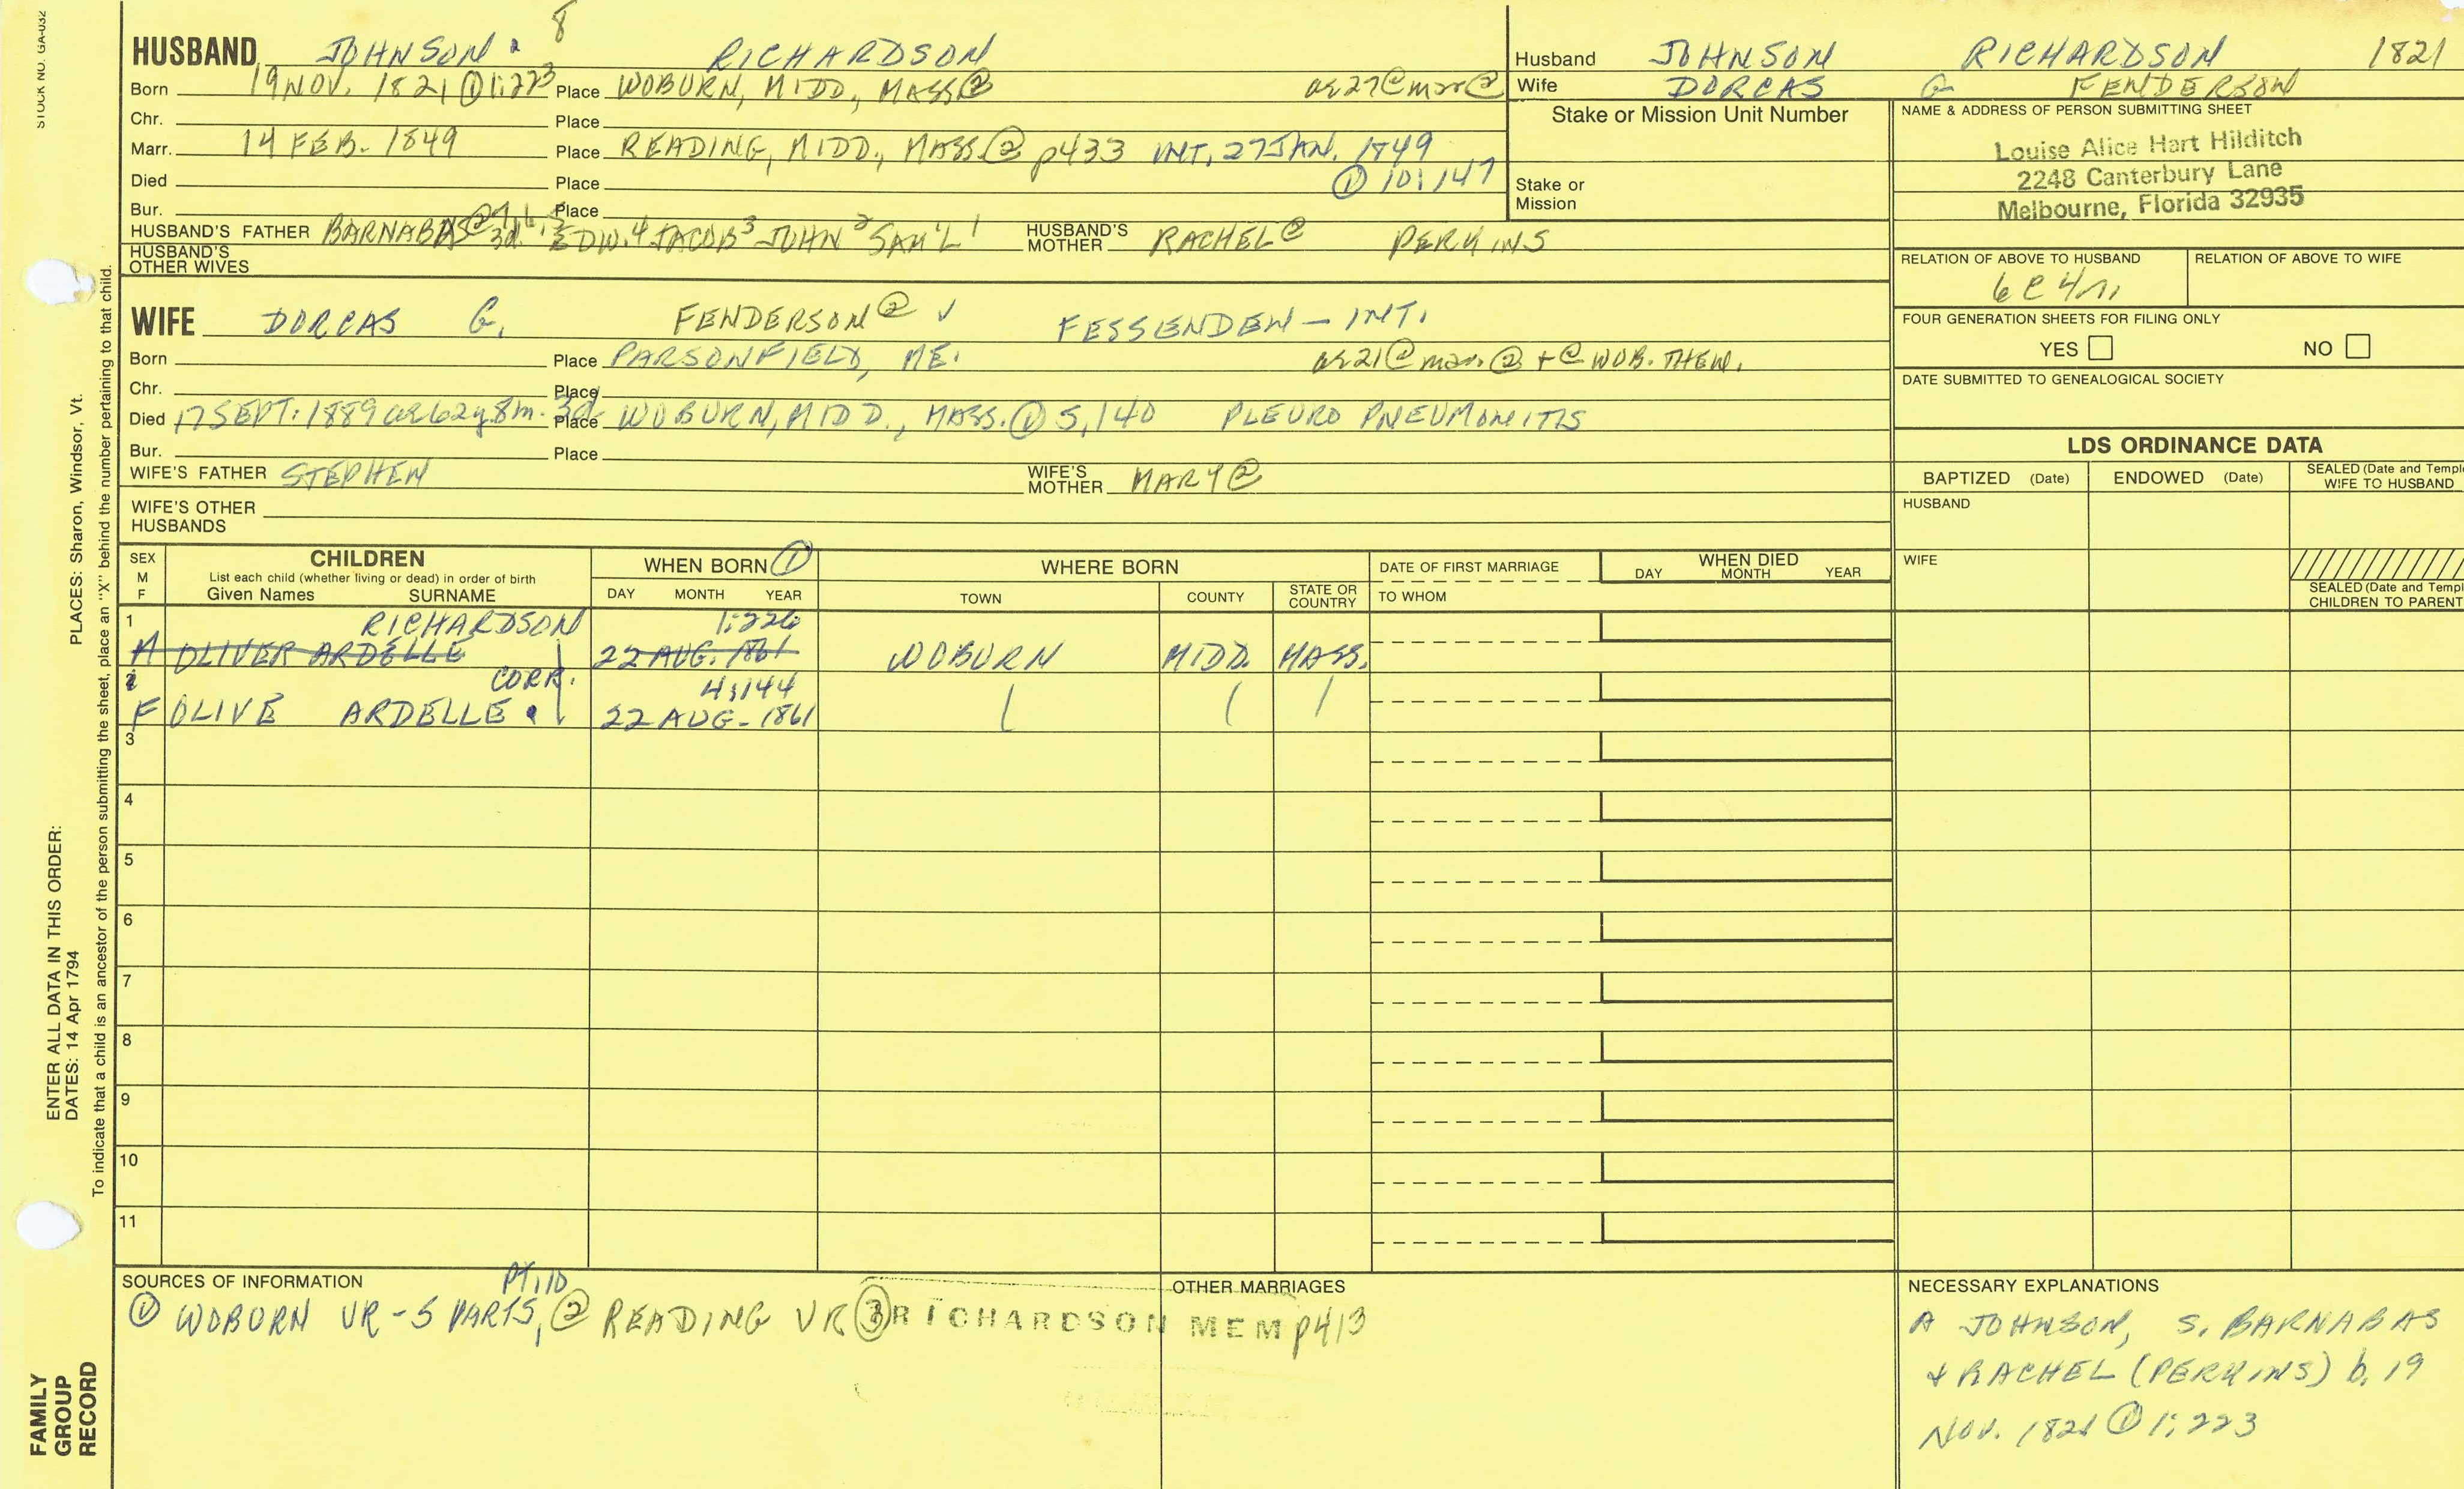 STOCK NO. GA-032
8
HUSBAND JOHNSON RICHARDSON
Born 19 NOV. 1821 ① 1:223 Place WOBURN, MIDD., MASS ② ae 27 @ mar ②
Chr. Place
Marr. 14 FEB. 1849 Place READING, MIDD., MASS. ② p433 INT. 27 JAN. 1849
Died Place ① 10: 147
Bur. Place
HUSBAND'S FATHER BARNABAS EDW.4 JACOB3 JOHN2 SAM'L1 HUSBAND'S MOTHER RACHEL PERKINS
HUSBAND'S OTHER WIVES
WIFE DORCAS G. FENDERSON ② ✓ FESSENDEN - INT.
Born Place PARSONFIELD, ME. ae 21 @ mar. ② + @ WOB. THEN.
Chr. Place
Died 17 SEPT. 1889 ae 62y 8m. 3d. Place WOBURN, MIDD., MASS. ① 5,140 PLEURO PNEUMONITIS
Bur. Place
WIFE'S FATHER STEPHEN WIFE'S MOTHER MARY ②
WIFE'S OTHER HUSBANDS
Husband JOHNSON RICHARDSON 1821
Wife DORCAS G FENDERSON
Stake or Mission Unit Number
Stake or Mission
NAME & ADDRESS OF PERSON SUBMITTING SHEET
Louise Alice Hart Hilditch
2248 Canterbury Lane
Melbourne, Florida 32935
RELATION OF ABOVE TO HUSBAND RELATION OF ABOVE TO WIFE
6C4r
FOUR GENERATION SHEETS FOR FILING ONLY
YES NO
DATE SUBMITTED TO GENEALOGICAL SOCIETY
LDS ORDINANCE DATA
BAPTIZED (Date) ENDOWED (Date) SEALED (Date and Templ
WIFE TO HUSBAND
HUSBAND
WIFE
SEALED (Date and Templ
CHILDREN TO PARENT
SEX M F CHILDREN WHEN BORN ① WHERE BORN DATE OF FIRST MARRIAGE WHEN DIED
List each child (whether living or dead) in order of birth
Given Names SURNAME DAY MONTH YEAR TOWN COUNTY STATE OR COUNTRY TO WHOM DAY MONTH YEAR
1 RICHARDSON 1:226
M OLIVER ARDELLE 22 AUG. 1861 WOBURN MIDD. MASS.
2 CORR. 4:144
F OLIVE ARDELLE 22 AUG. 1861
3
4
5
6
7
8
9
10
11
SOURCES OF INFORMATION
PT. 10
① WOBURN VR - 5 PARTS, ② READING VR ③ RICHARDSON MEM p413
OTHER MARRIAGES
NECESSARY EXPLANATIONS
A JOHNSON, S. BARNABAS
+ RACHEL (PERKINS) b. 19
NOV. 1821 ① 1:223
ENTER ALL DATA IN THIS ORDER:
DATES: 14 Apr 1794
PLACES: Sharon, Windsor, Vt.
To indicate that a child is an ancestor of the person submitting the sheet, place an "X" behind the number pertaining to that child.
FAMILY
GROUP
RECORD